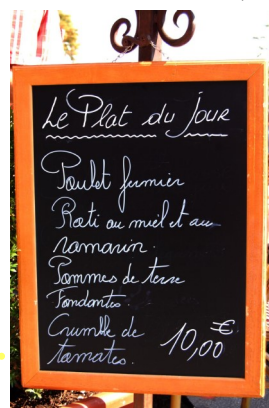 Le Plat du Jour
Poulet fumier
Roti au miel et au
romarin.
Pommes de terre
Fondantes.
Crumble de
tomates.
10,00 €